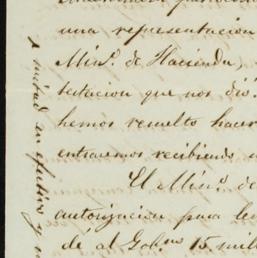 una representacion
Minº. de Hacienda,
tacion que nos dió
hemos resuelto hacer
entraremos recibiendo
El Minº. de
autorizacion para le
dé al Gobno 15 mil
mitad en efectivo y